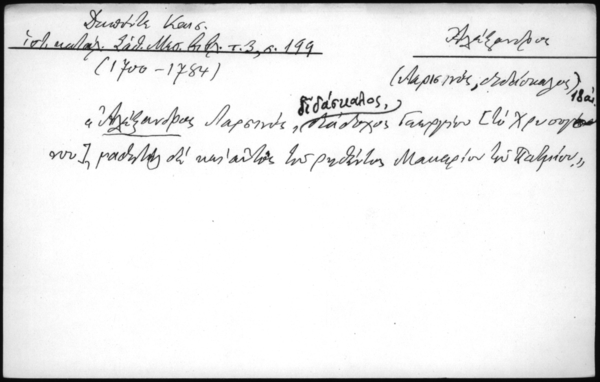 Δαπόντε Καισ.
ἱστ. κατάλ. Σάθ. Μεσ. βιβλ. τ. 3, σ. 199
(1700 – 1784)
Ἀλέξανδρος
(Λαρισινός, διδάσκαλος)
18 αἰ.
« Ἀλέξανδρος Λαρσινός, διδάσκαλος, διάδοχος Γεωργίου [τοῦ Χρυσογό
νου], μαθητὴς δὲ καὶ αὐτὸς τοῦ ῥηθέντος Μακαρίου τοῦ Πατμίου. »